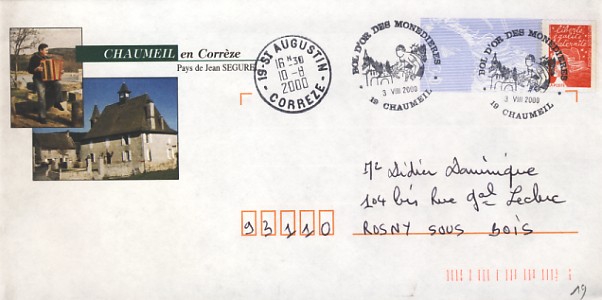 CHAUMEIL en Corrèze
Pays de Jean SEGUREL
19-ST AUGUSTIN
16 H -30
10 -8
2000
- CORREZE -
BOL D'OR DES MONEDIERES
3 VIII 2000
19 CHAUMEIL
BOL D'OR DES MONEDIERES
3 VIII 2000
19 CHAUMEIL
Liberté
égalité
fraternité
Mr Didier Dominique
104 bis Rue gal Leclerc
93110 ROSNY SOUS BOIS
19